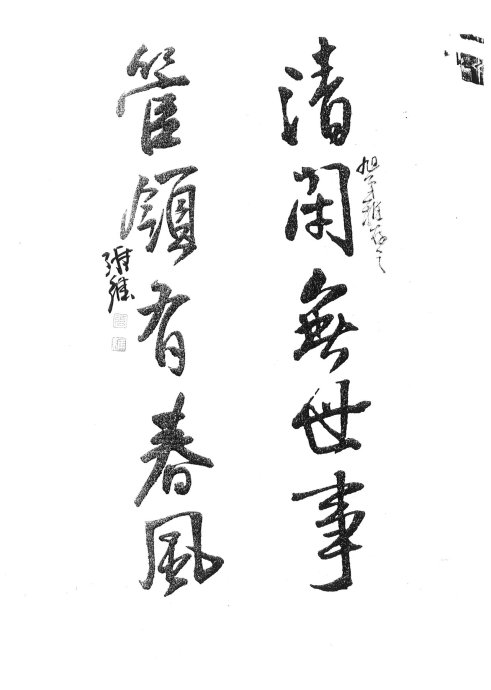 清閑無世事
管領有春風